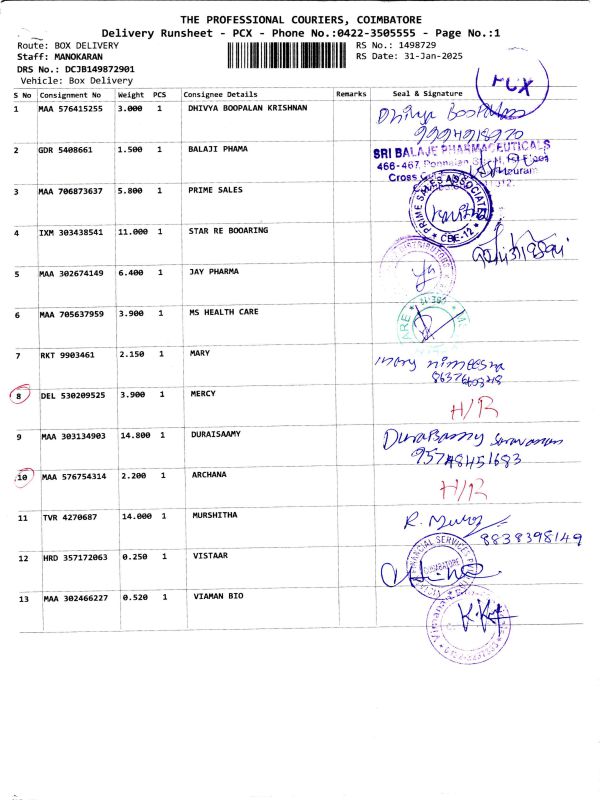 THE PROFESSIONAL COURIERS, COIMBATORE
Delivery Runsheet - PCX - Phone No.:0422-3505555 - Page No.:1
Route: BOX DELIVERY RS No.: 1498729
Staff: MANOKARAN RS Date: 31-Jan-2025
DRS No.: DCJB149872901
Vehicle: Box Delivery
PCX
S No Consignment No Weight PCS Consignee Details Remarks Seal & Signature
1 MAA 576415255 3.000 1 DHIVYA BOOPALAN KRISHNAN Dhivya
2 GDR 5408661 1.500 1 BALAJI PHAMA SRI BALAJE PHARMACEUTICALS
466-467, Ponnaian
Cross
3 MAA 706873637 5.800 1 PRIME SALES PRIME SALES ASSOCIATES CBE-12
4 IXM 303438541 11.000 1 STAR RE BOOARING
5 MAA 302674149 6.400 1 JAY PHARMA
6 MAA 705637959 3.900 1 MS HEALTH CARE
7 RKT 9903461 2.150 1 MARY mary
8 DEL 530209525 3.900 1 MERCY H/R
9 MAA 303134903 14.800 1 DURAISAAMY
10 MAA 576754314 2.200 1 ARCHANA H/R
11 TVR 4270687 14.000 1 MURSHITHA R.
8838398149
12 HRD 357172063 0.250 1 VISTAAR FINANCIAL SERVICES COIMBATORE
13 MAA 302466227 0.520 1 VIAMAN BIO